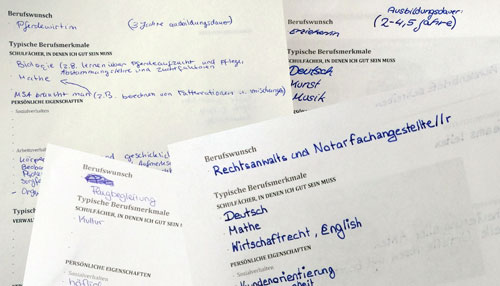 Berufswunsch
Pferdewirtin (3 Jahre Ausbildungsdauer)
Typische Berufsmerkmale
SCHULFÄCHER, IN DENEN ICH GUT SEIN MUSS
Biologie (z.B. lernen über Pferdeaufzucht und Pflege,
Mathe
MSA braucht man (z.B. berechnen von Futterrationen
PERSÖNLICHE EIGENSCHAFTEN
Sozialverhalten
und geschicklich
Ausbildungsdauer:
(2-4,5 Jahre)
Berufswunsch
Erzieherin
Typische Berufsmerkmale
SCHULFÄCHER, IN DENEN ICH GUT SEIN MUSS
Deutsch
Kunst
Musik
Berufswunsch
Flugbegleitung
Typische Berufsmerkmale
SCHULFÄCHER, IN DENEN ICH GUT SEIN
Kultur
PERSÖNLICHE EIGENSCHAFTEN
Sozialverhalten
Berufswunsch
Rechtsanwalts und Notarfachangestellte/r
Typische Berufsmerkmale
SCHULFÄCHER, IN DENEN ICH GUT SEIN MUSS
Deutsch
Mathe
Wirtschaftrecht, English
PERSÖNLICHE EIGENSCHAFTEN
Sozialverhalten
Kundenorientierung